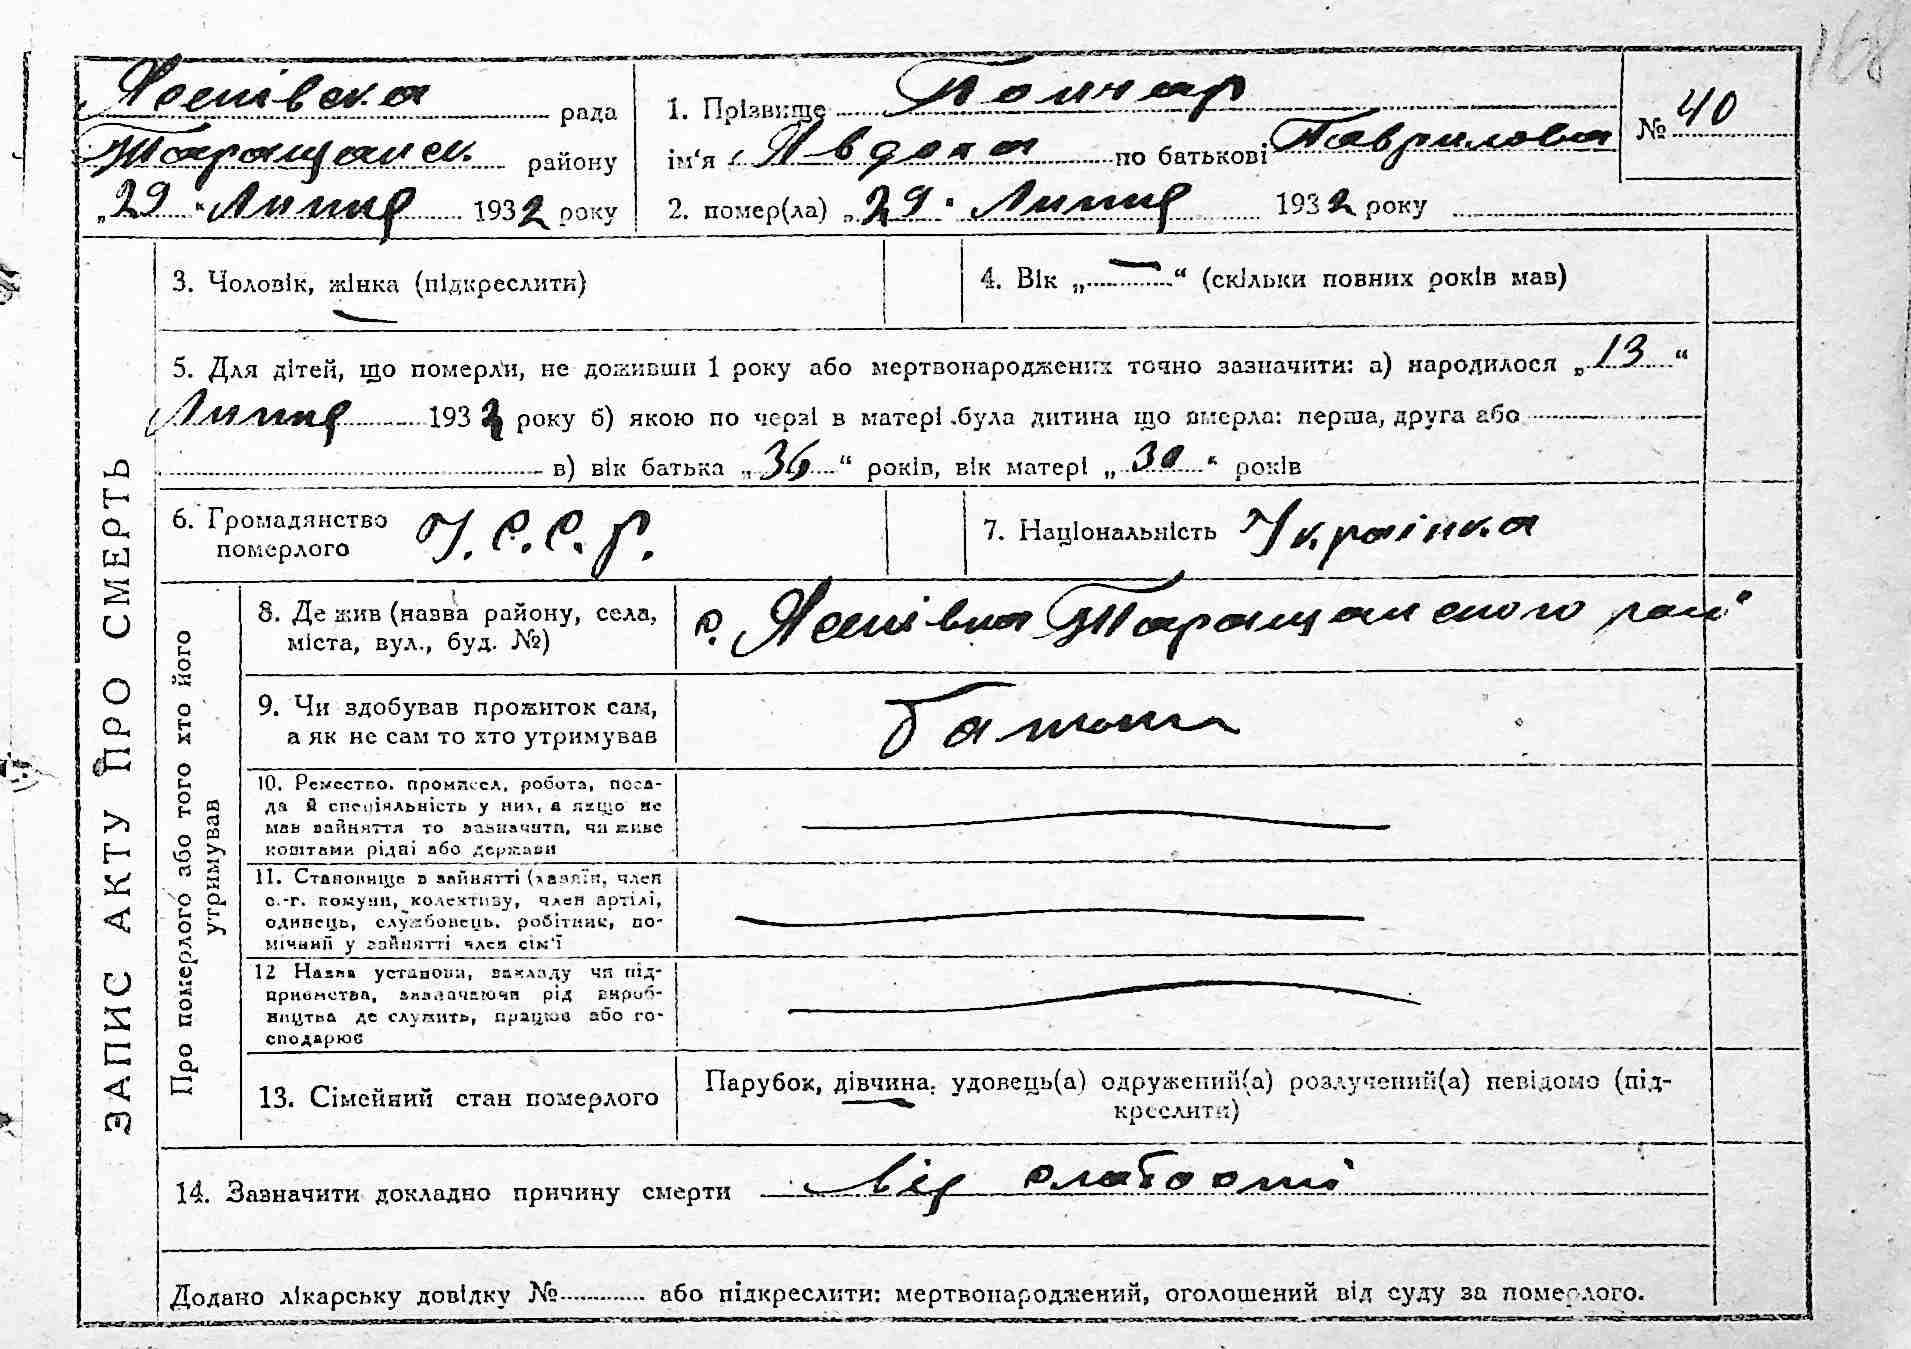 168
Ясенівська рада
Таращанськ. району
„29“ Липня 1932 року
1. Прізвище Гончар
ім'я Явдоха по батькові Гаврилова
2. помер(ла) „29“ Липня 1932 року
№ 40
ЗАПИС АКТУ ПРО СМЕРТЬ
3. Чоловік, жінка (підкреслити)
4. Вік „—“ (скільки повних років мав)
5. Для дітей, що померли, не доживши 1 року або мертвонароджених точно зазначити: а) народилося „13“
Липня 1932 року б) якою по черзі в матері була дитина що вмерла: перша, друга або
в) вік батька „36“ років, вік матері „30“ років
6. Громадянство
померлого У.С.С.Р.
7. Національність Українка
Про померлого або того хто його
утримував
8. Де жив (назва району, села,
міста, вул., буд. №)
с. Ясенівка Таращанського рай
9. Чи здобував прожиток сам,
а як не сам то хто утримував
10. Ремество, промисел, робота, поса-
да й спеціяльність у них, а якщо не
мав зайняття то зазначити, чи живе
коштами рідні або держави
11. Становище в зайнятті (хазяїн, член
с.-г. комуни, колективу, член артілі,
одинець, службовець, робітник, по-
мічний у зайнятті член сім'ї
12 Назва установи, закладу чи під-
приємства, зазначаючи рід вироб-
ництва де служить, працює або го-
сподарює
13. Сімейний стан померлого
Парубок, дівчина, удовець(а) одружений(а) розлучений(а) невідомо (під-
креслити)
14. Зазначити докладно причину смерти Від слабості
Додано лікарську довідку № або підкреслити: мертвонароджений, оголошений від суду за померлого.